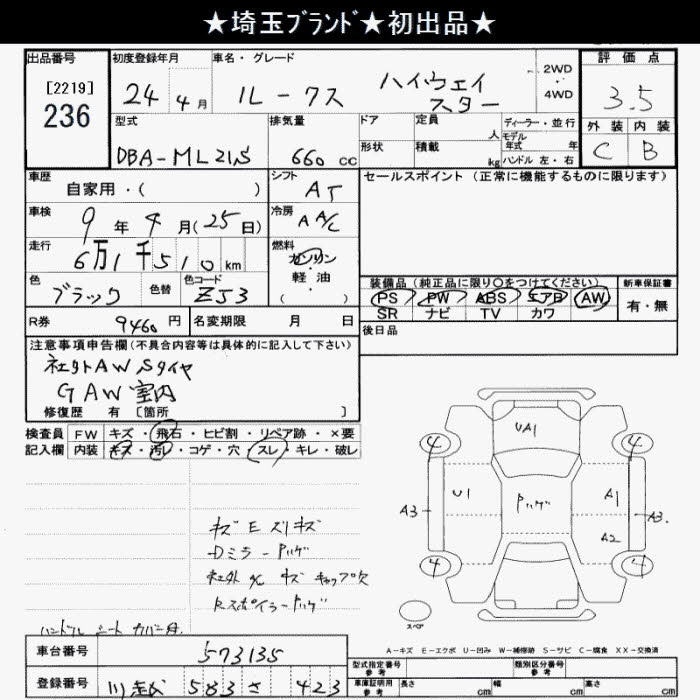 ★埼玉ブランド★初出品★
出品番号 初度登録年月 車名・グレード 2WD 評価点
[2219] 24年4月 ルークス ハイウェイスター 4WD 3.5
236
型式 排気量 ドア 定員 人 ディーラー・並行 外装 内装
DBA-ML21S 660cc 形状 積載 kg モデル年式 年 ハンドル 左・右 C B
車歴 シフト セールスポイント (正常に機能するものに限ります)
自家用・( ) AT
車検 冷房
9年4月(25日) AAC
走行 燃料
6万1千510km ガソリン
軽・油
( )
色 色替 色コード 装備品 (純正品に限り○をつけてください) 新車保証書
ブラック ZJ3 PS PW ABS エアB AW 有・無
SR ナビ TV カワ
R券 9460円 名変期限 月 日 後日品
注意事項申告欄(不具合内容等は具体的に記入して下さい)
社外AW Sタイヤ
GAW室内
修復歴 有 [箇所 ]
検査員 FW キズ・飛石・ヒビ割・リペア跡・×要
記入欄 内装 キズ・汚レ・コゲ・穴・スレ・キレ・破レ
4 UA1 4
A3 U1 Pハゲ A1 A3
A2
4 4
スペア
キズ E スリキズ
Dミラーハゲ
社外 キズ キャップ欠
RスポイラーPハゲ
ハンドル シート カバー
A-キズ E-エクボ U-凹み W-補修跡 S-サビ C-腐食 XX-交換済
車台番号 573135 型式指定番号 参考 類別区分番号 参考
登録番号 川越 583 さ 423 車庫証明用 参考 長さ cm 幅 cm 高さ cm